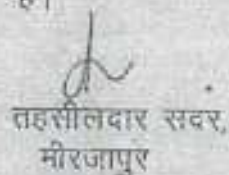 है।
तहसीलदार सदर,
मीरजापुर